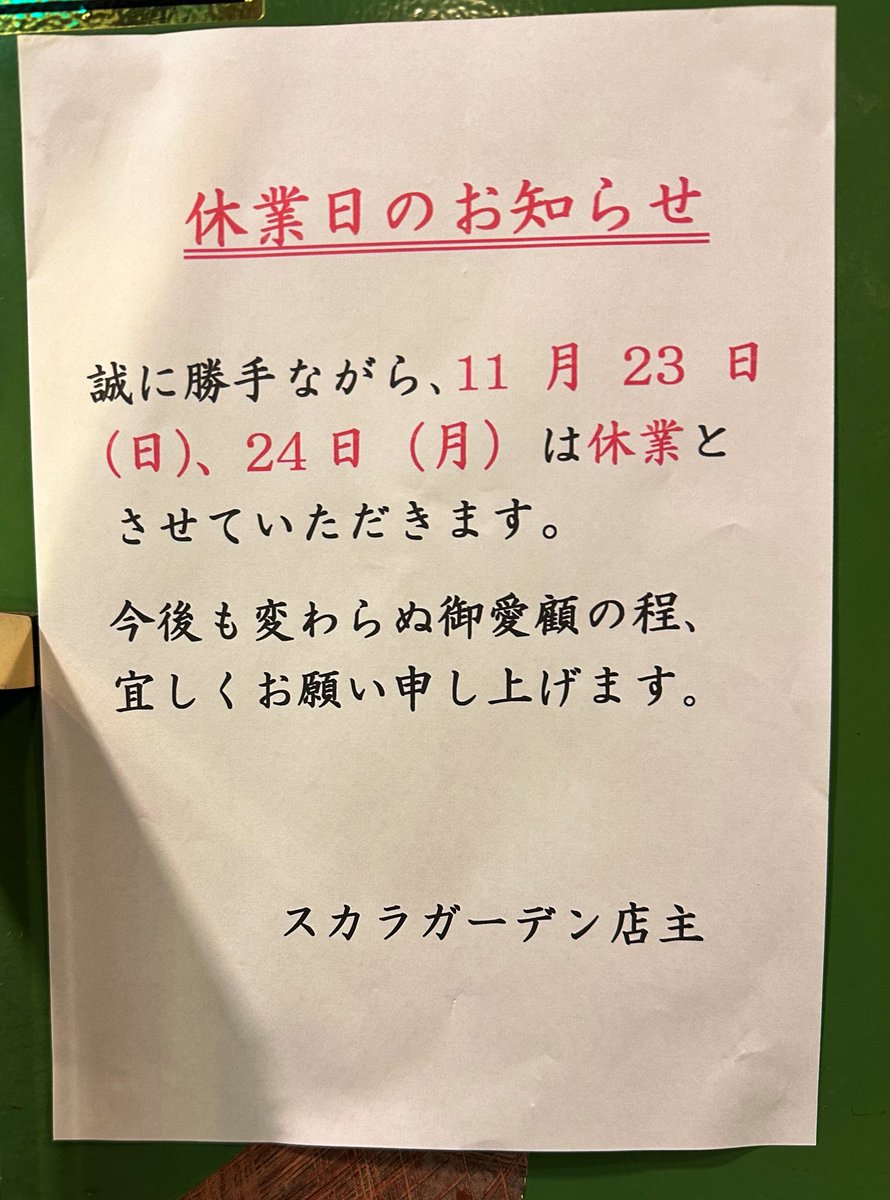 休業日のお知らせ
誠に勝手ながら、11 月 23 日
(日)、24日 (月) は休業と
させていただきます。
今後も変わらぬ御愛顧の程、
宜しくお願い申し上げます。
スカラガーデン店主